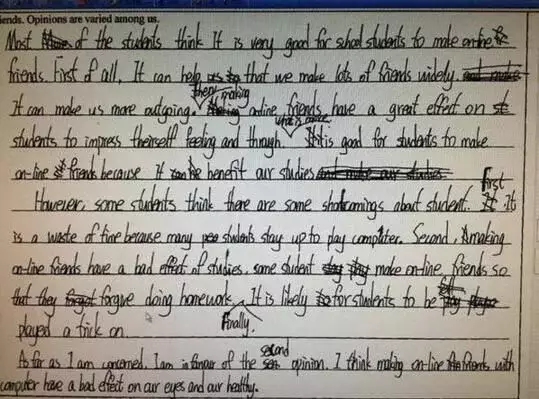 iends. Opinions are varied among us.
Most of the students think It is very good for school students to make on-line
friends. First of all, It can help us that we make lots of friends widely.
It can make us more outgoing. Then, making on-line friends have a great effect on
students to impress theirself feeling and through. What is more, It is good for students to make
on-line friends because it can be benefit our studies
However, some students think there are some shortcomings about student. First It
is a waste of time because many students stay up to play computer. Second, making
on-line friends have a bad effect of studies, some student make on-line friends so
that they forgive doing homework. Finally, It is likely for students to be
played a trick on.
As far as I am concerned, I am in favour of the second opinion. I think making on-line friends with
computer have a bad effect on our eyes and our healthy.